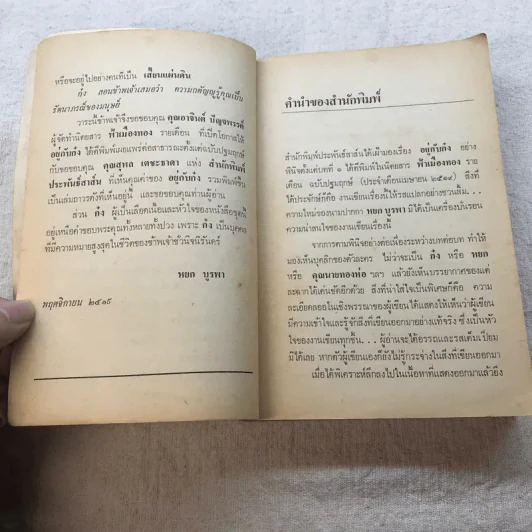 หรือจะอยู่ไปอย่างคนที่เป็น เสี้ยนแผ่นดิน
ก๋ง สอนข้าพเจ้าเสมอว่า ความกตัญญูรู้คุณเป็น
รัตนาภรณ์ของมนุษย์
วาระนี้ข้าพเจ้าจึงขอขอบคุณ คุณอาจินต์ ปัญจพรรค์
ผู้จัดทำนิตยสาร ฟ้าเมืองทอง รายเดือน ที่เปิดโอกาสให้
อยู่กับก๋ง ได้ตีพิมพ์เผยแพร่ต่อสาธารณะตั้งแต่ฉบับปฐมฤกษ์
กับขอขอบคุณ คุณสุพล เตชะธาดา แห่ง สำนักพิมพ์
ประพันธ์สาส์น ที่เห็นคุณค่าของ อยู่กับก๋ง รวมพิมพ์ขึ้น
เป็นเล่มถาวรดังที่เห็นอยู่นี้ และขอขอบคุณท่านผู้อ่าน
ส่วน ก๋ง ผู้เป็นเลือดเนื้อและหัวใจของหนังสือชุดนี้
อยู่เหนือคำขอบพระคุณทั้งหลายทั้งปวง เพราะ ก๋ง เป็นบุคคล
ที่มีความหมายสูงสุดในชีวิตของข้าพเจ้าชั่วนิจนิรันดร์
หยก บูรพา
พฤศจิกายน ๒๕๑๙
คำนำของสำนักพิมพ์
สำนักพิมพ์ประพันธ์สาส์นได้เฝ้ามองเรื่อง อยู่กับก๋ง อย่าง
พินิจตั้งแต่บทที่ ๑ ได้ตีพิมพ์ในนิตยสาร ฟ้าเมืองทอง ราย
เดือน ฉบับปฐมฤกษ์ (ประจำเดือนเมษายน ๒๕๑๙) สิ่งที่
ได้ประจักษ์ก็คือ งานเขียนเรื่องนี้ให้รสแปลกอย่างชวนลิ้ม...
ความใหม่ของนามปากกา หยก บูรพา มิได้เป็นเครื่องบั่นรอน
ความน่าสนใจของงานเขียนเรื่องนี้
จากการตามพินิจอย่างต่อเนื่องระหว่างบทต่อบท ทำให้
มองเห็นบุคลิกของตัวละคร ไม่ว่าจะเป็น ก๋ง หรือ หยก
หรือ คุณนายทองห่อ ฯลฯ แล้วยังเห็นบรรยากาศของแต่
ละฉากได้เด่นชัดอีกด้วย สิ่งที่น่าใส่ใจเป็นพิเศษก็คือ ความ
ละเอียดลออในเชิงพรรณนาของผู้เขียน ได้แสดงให้เห็นว่าผู้เขียน
มีความเข้าใจและรู้จักสิ่งที่เขียนออกมาอย่างแท้จริง ซึ่งเป็นหัว
ใจของงานเขียนทุกชิ้น... ผู้อ่านจะได้อรรถและรสเต็มเปี่ยม
มิได้เลย หากตัวผู้เขียนเองก็ยังไม่รู้กระจ่างในสิ่งที่เขียนออกมา
เมื่อได้พิเคราะห์ลึกลงไปในเนื้อหาที่แสดงออกมาแล้วยิ่ง